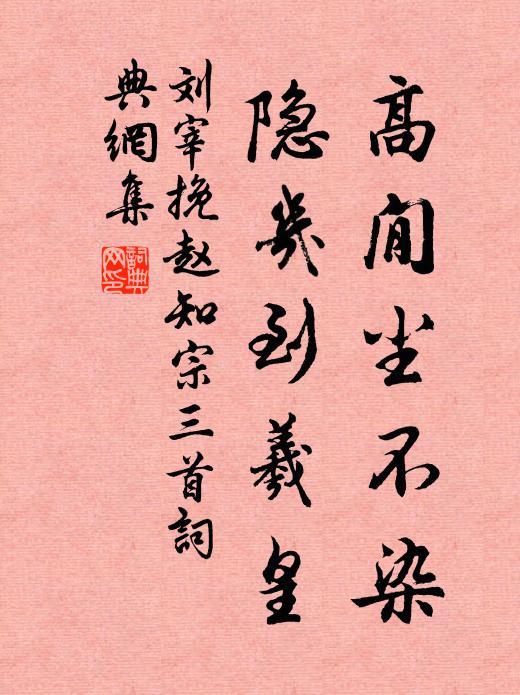 高閒尘不染
隐幾到羲皇
刘宰挽赵知宗三首詞
典網集
詞典
网印